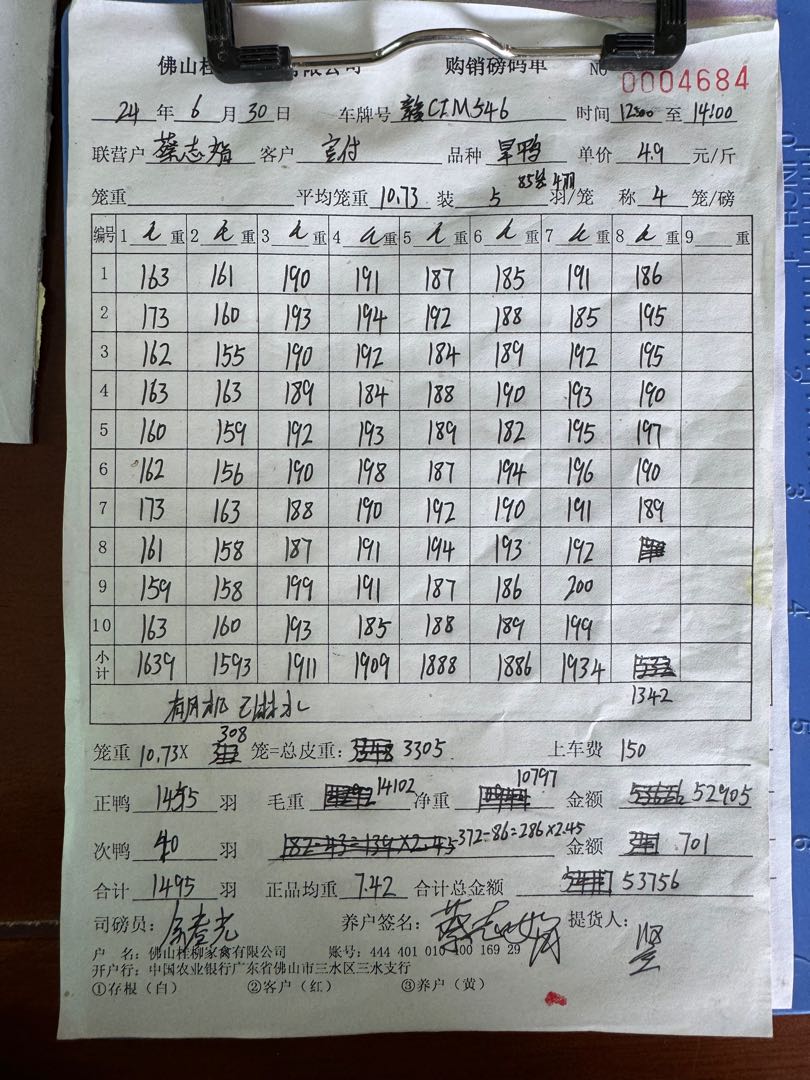 佛山桂 有限公司 购销磅码单 NO 0004684
24 年 6 月 30 日 车牌号 赣CIM546 时间 12:00 至 14:00
联营户 蔡志娟 客户 品种 旱鸭 单价 4.9 元/斤
85笼 4羽
笼重 平均笼重 10.73 装 5 羽/笼 称 4 笼/磅
编号 1 毛 重 2 毛 重 3 毛 重 4 毛 重 5 毛 重 6 毛 重 7 毛 重 8 毛 重 9 重
1 163 161 190 191 187 185 191 186
2 173 160 193 194 192 188 185 195
3 162 155 190 192 184 189 192 195
4 163 163 189 184 188 190 193 190
5 160 159 192 193 189 182 195 197
6 162 156 190 198 187 194 196 190
7 173 163 188 190 192 190 191 189
8 161 158 187 191 194 193 192
9 159 158 199 191 187 186 200
10 163 160 193 185 188 189 199
小计 1639 1593 1911 1909 1888 1886 1934
1342
有风机 已淋水
308
笼重 10.73X 笼=总皮重: 3305 上车费 150
正鸭 1455 羽 毛重 14102 净重 10797 金额 52905
次鸭 40 羽 182-43=139×2.45 372-86=286×2.45 金额 701
合计 1495 羽 正品均重 7.42 合计总金额 53756
司磅员: 养户签名: 蔡志娟 提货人:
户 名: 佛山桂柳家禽有限公司 账号: 444 401 010 400 169 29
开户行: 中国农业银行广东省佛山市三水区三水支行
①存根(白) ②客户(红) ③养户(黄)